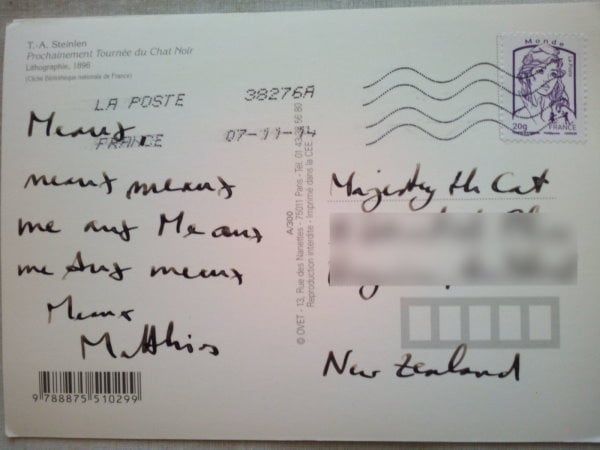 T.-A. Steinlen
Prochainement Tournée du Chat Noir
Lithographie, 1896
(Cliché Bibliothèque nationale de France)
LA POSTE 38276A
FRANCE 07-11-14
Monde
20g FRANCE
Meaux,
meaux meaux
me aux Meaux
me Aux meaux
Meaux
Matthias
A/300
© OVET - 13, Rue des Nanettes - 75011 Paris - Tél. 01 43 56 80
Reproduction interdite - Imprimé dans la CEE
Majesty the Cat
New Zealand
9 788875 510299